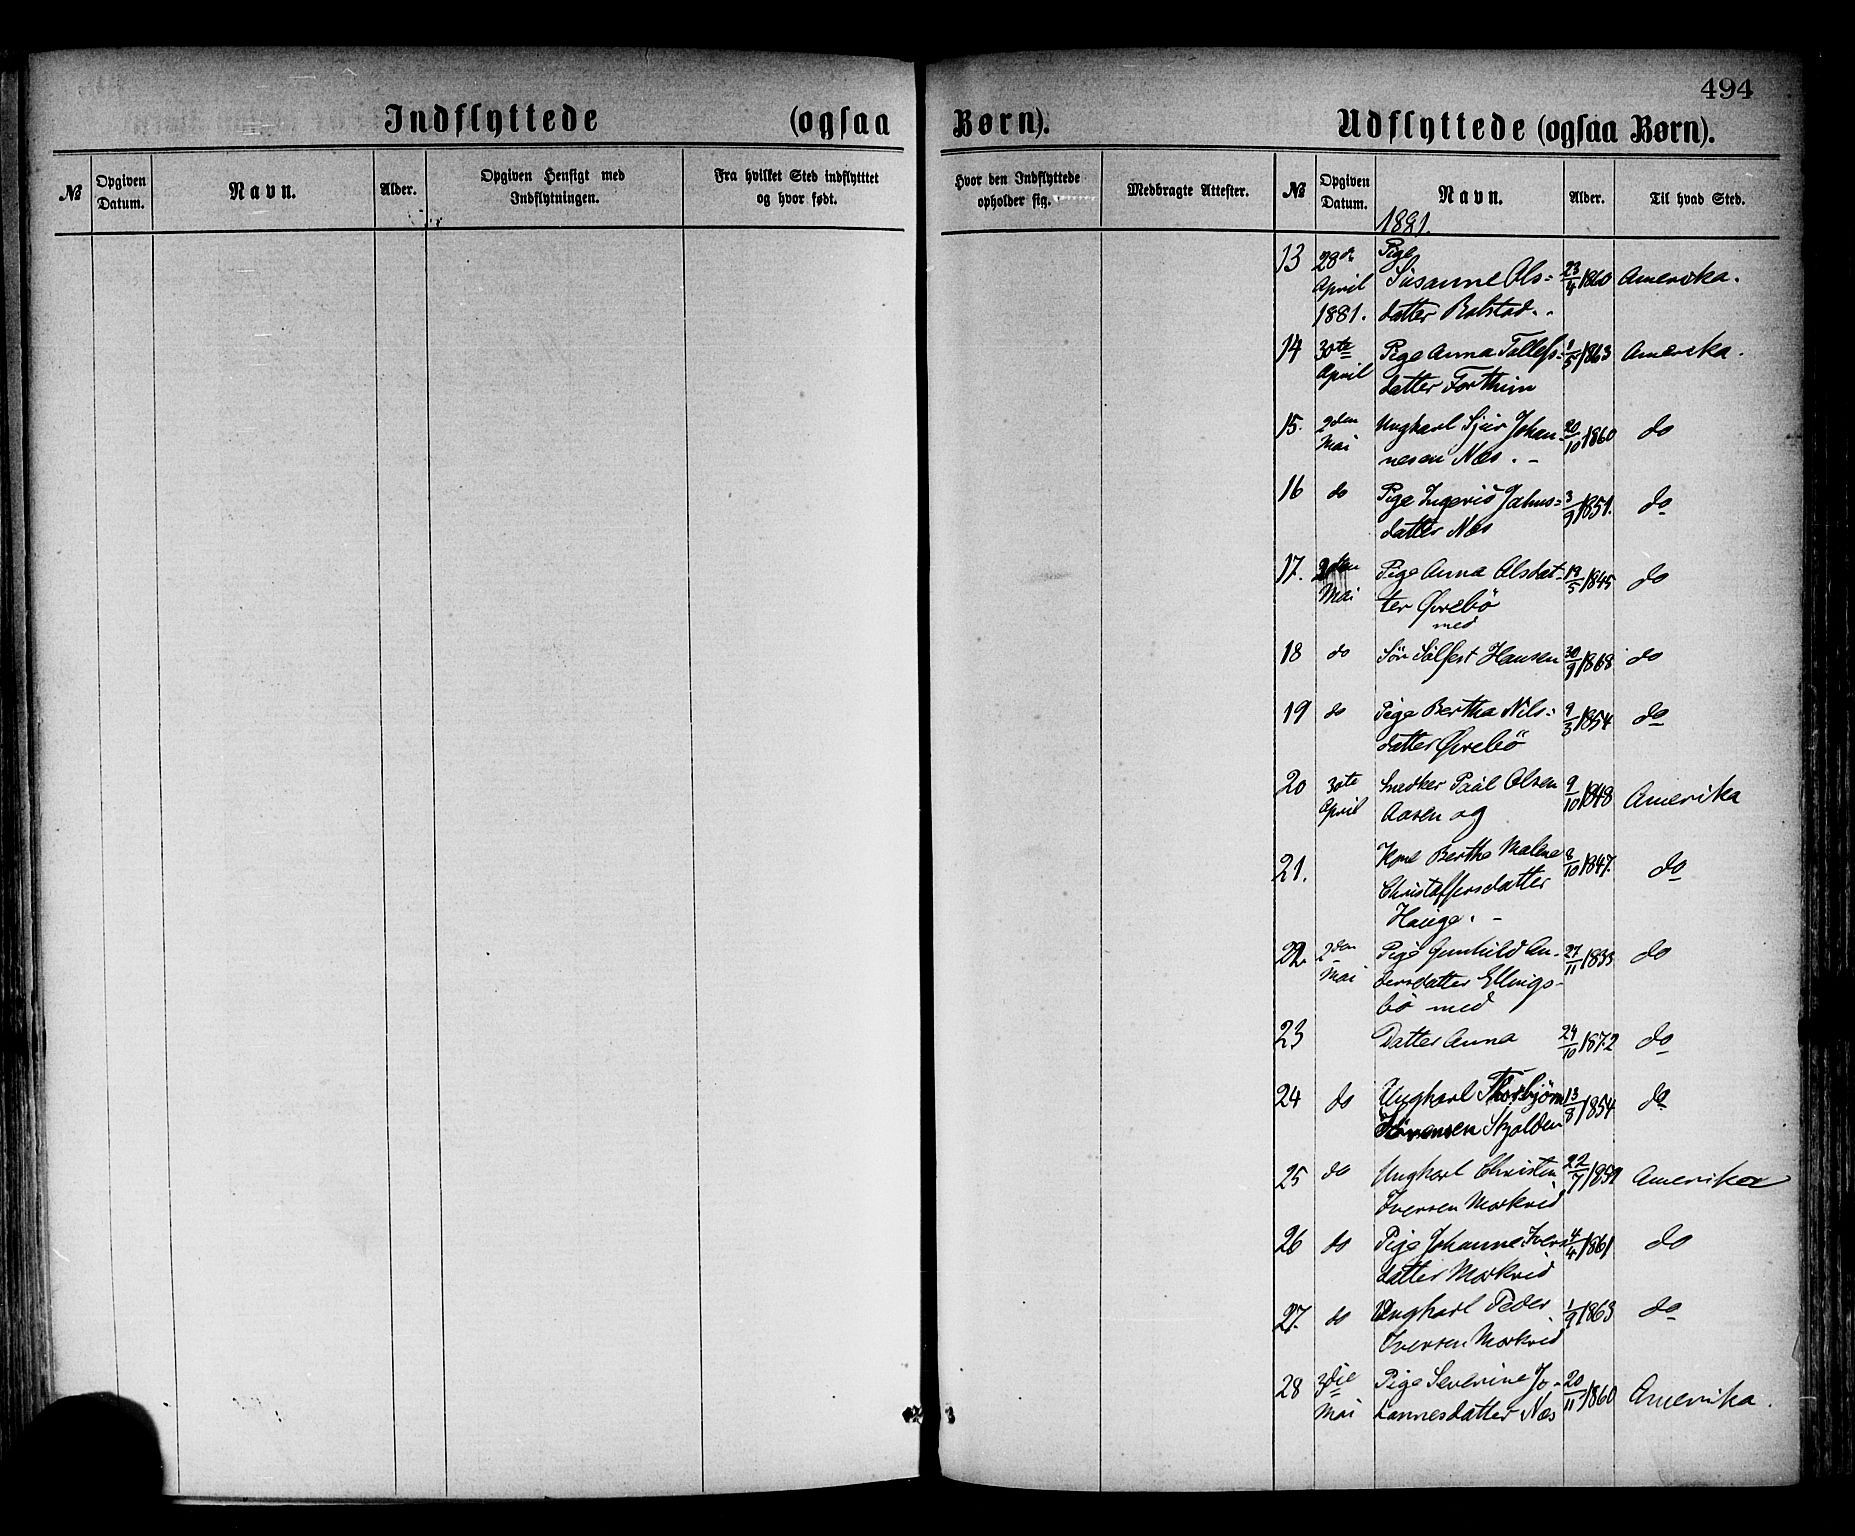 494
Indflyttede (ogsaa Børn).
Udflyttede (ogsaa Børn).
№ Opgiven Datum. Navn. Alder. Opgiven Hensigt med Indflytningen. Fra hvilket Sted indflytttet og hvor født. Hvor den Indflyttede opholder sig. Medbragte Attester. № Opgiven Datum. Navn. Alder. Til hvad Sted.
1881.
13 28de Pige
April Susanne Ols- 23/4 1860 Amerika.
1881. datter Bolstad.
14 30te Pige Anna Tollefs- 1/5 1863 Amerika.
April datter Forthun
15. 2den Ungkarl Sjur Johan- 20/10 1860 do
Mai nesen Næs.
16 do Pige Ingerid Johns- 3/9 1851. do
datter Næs
17. 2den Pige Anna Olsdat- 19/5 1845 do
Mai ter Øvrebö
med
18 do Sön Sölfest Hansen 30/9 1868 do
19 do Pige Bertha Nils- 9/3 1854 do
datter Øvrebö
20 30te Snedker Paal Olsen 9/10 1848 Amerika
April Aasen og
21. Kone Berthe Malene 8/10 1847. do
Christoffersdatter
Hauge.
22. 2den Pige Gunhild An- 27/11 1833 do
Mai dersdatter Ellings-
bö med
23 Datter Anna 24/10 1872 do
24 do Ungkarl Thorbjørn 13/8 1854 do
Sörensen Skjolden
25 do Ungkarl Christen 22/7 1859 Amerika
Iversen Morkrid
26 do Pige Johanne Ivers 4/4 1861 do
datter Morkrid
27. do Ungkarl Peder 1/9 1863 do
Iversen Morkrid
28 3die Pige Severine Jo- 20/11 1860 Amerika.
Mai hannesdatter Næs